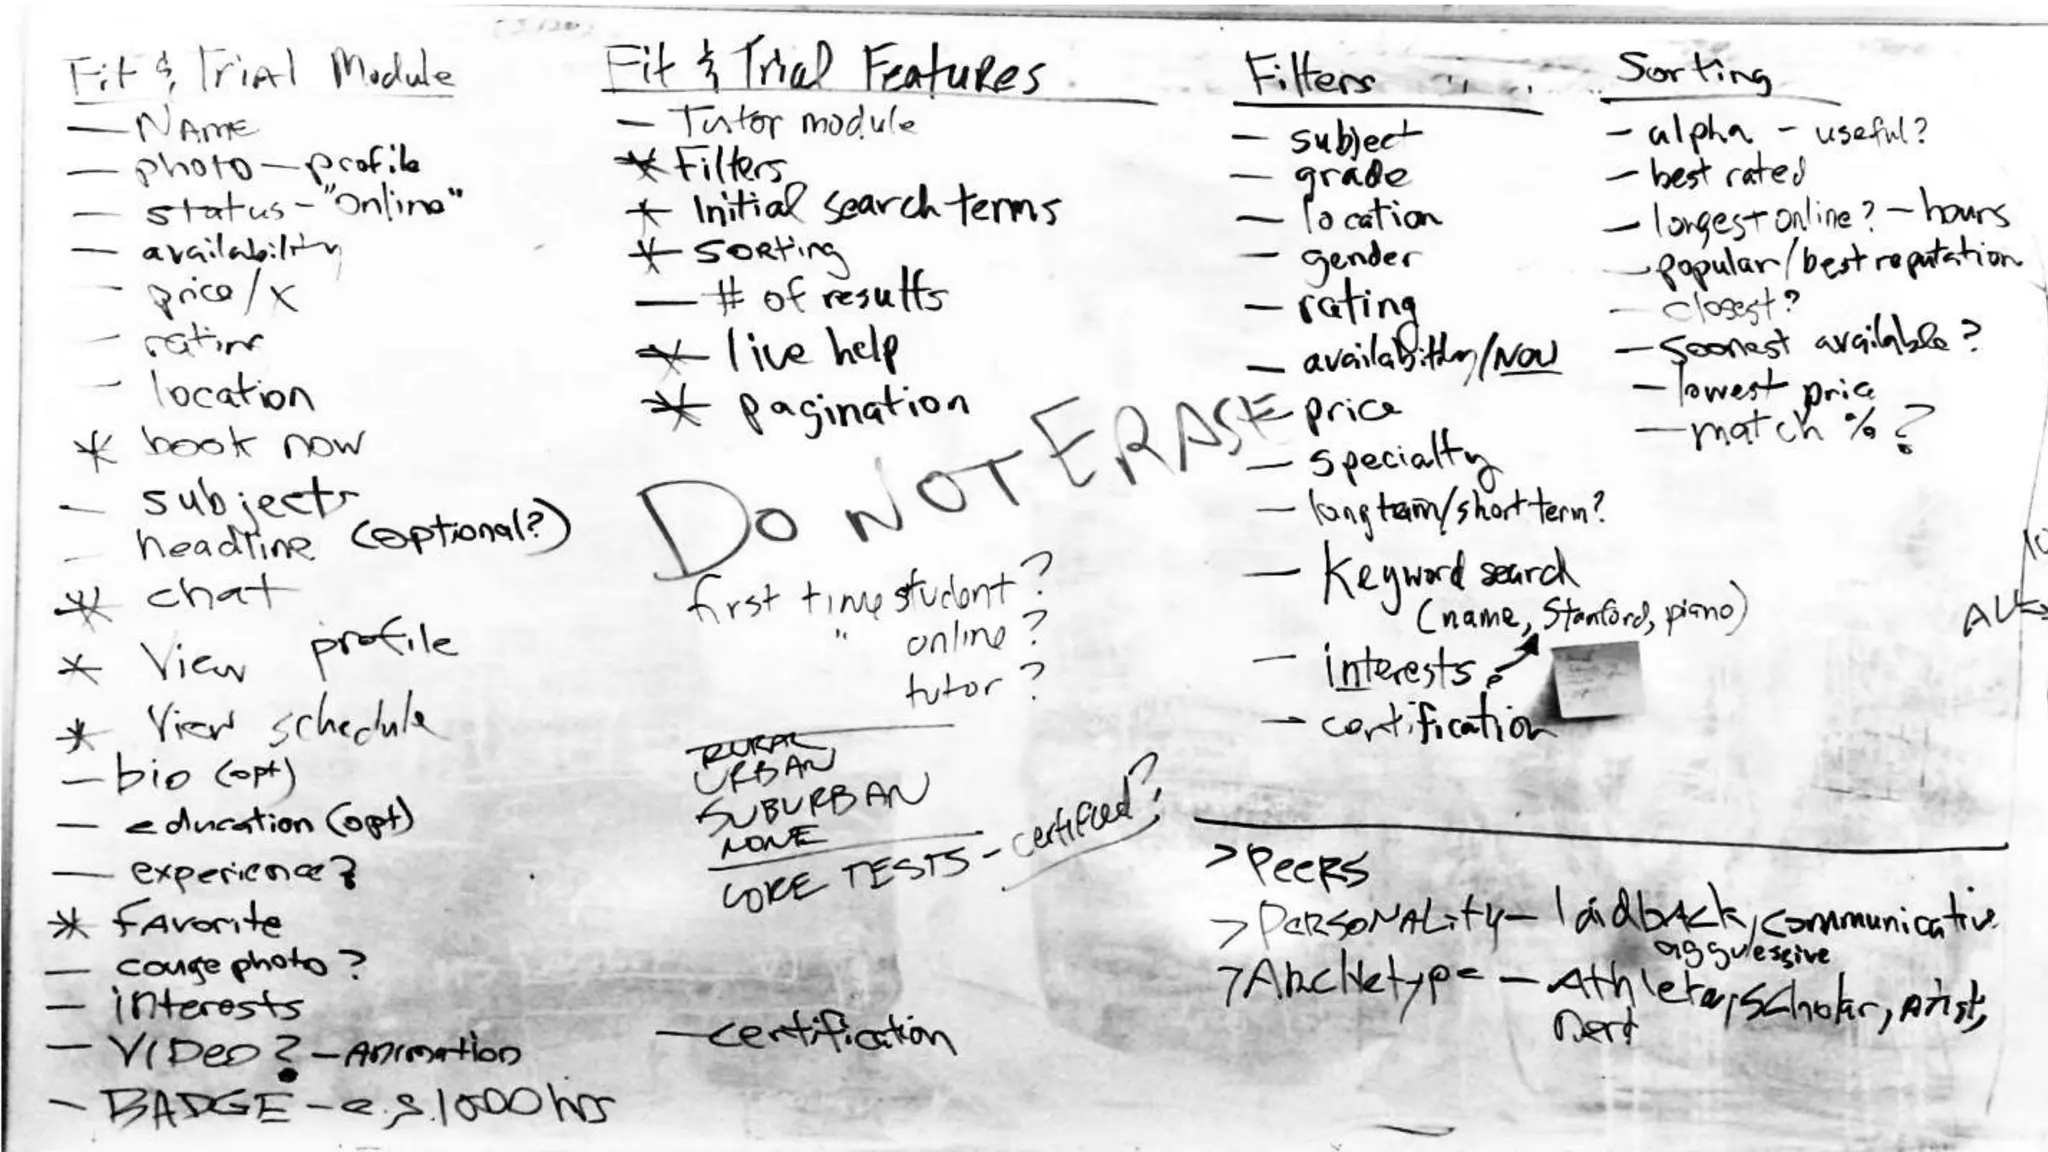 Fit & Trial Module
— NAME
— photo — profile
— status - "online"
— availability
— price/x
— rating
— location
* book now
— subjects
— headline (optional?)
* chat
* View profile
* View schedule
— bio (opt)
— education (opt)
— experience?
* FAVorite
— couge photo?
— interests
— VIDeo? — Animation
— BADGE — e.g. 1000 hrs
Fit & Trial Features
— Tutor module
* Filters
* Initial search terms
* Sorting
— # of results
* live help
* pagination
DO NOT ERASE
first time student?
" online?
tutor?
RURAL
URBAN
SUBURBAN
NONE
CORE TESTS - certified?
— certification
Filters
— subject
— grade
— location
— gender
— rating
— availability/NOW
— price
— specialty
— long term/short term?
— Keyword search
(name, Stanford, piano)
— interests
— certification
Sorting
— alpha - useful?
— best rated
— longest online? — hours
— popular/best reputation
— closest?
— soonest available?
— lowest price
— match %?
> Peers
> Personality — laidback, communicative
aggressive
> Archetype — Athlete, Scholar, Artist,
nerd